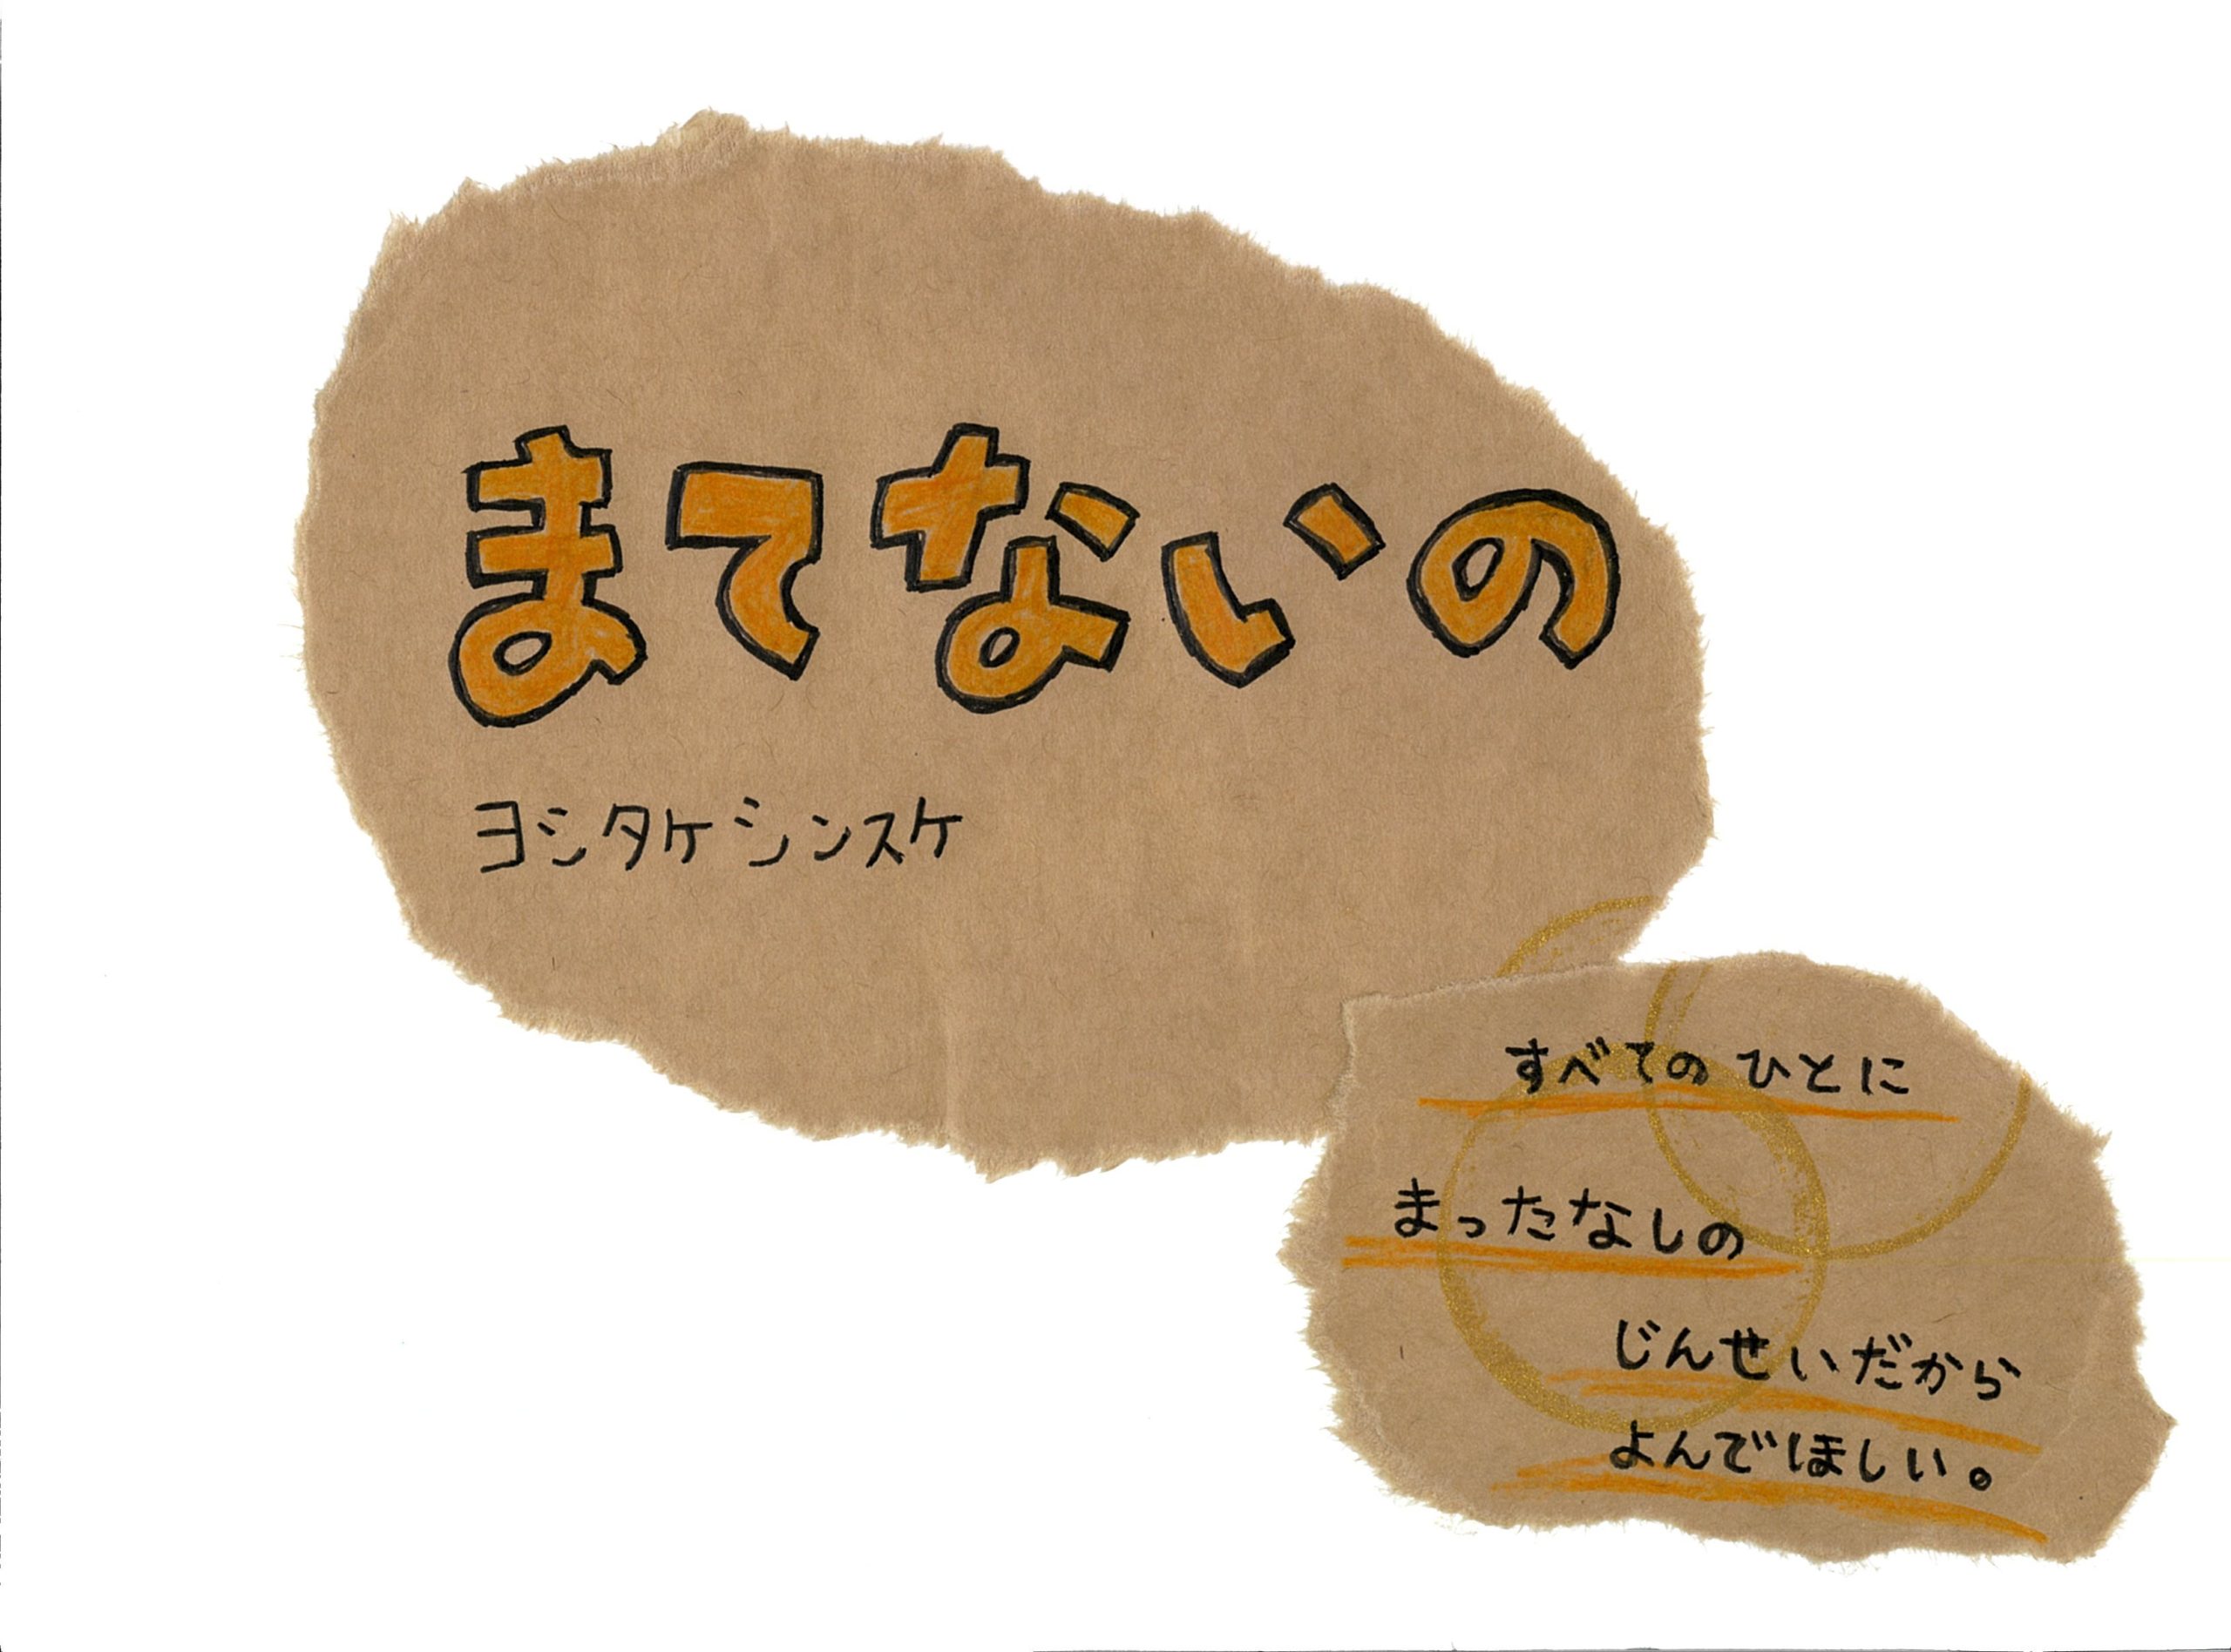 まてないの
ヨシタケシンスケ
すべてのひとに
まったなしの
じんせいだから
よんでほしい。